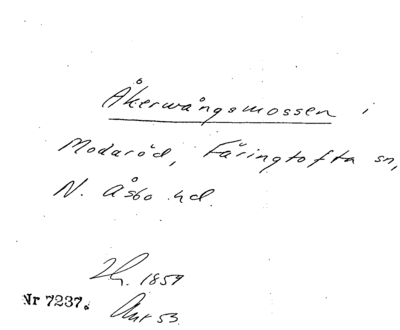 Åkerwångsmossen i
Modaröd, Färingtofta sn,
N. Åsbo hd.
1859
Nr 7237.
53